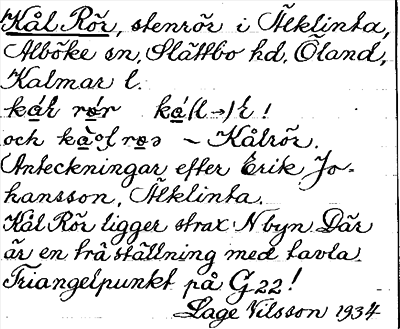 Kål Rör, stenrör i Älklinta,
Alböke sn, Slättbo hd, Öland,
Kalmar l.
och – Kålrör.
Anteckningar efter Erik Jo-
hansson, Älklinta.
Kål Rör ligger strax N byn. Där
är en träställning med tavla.
Triangelpunkt på G22!
Lage Nilsson 1934